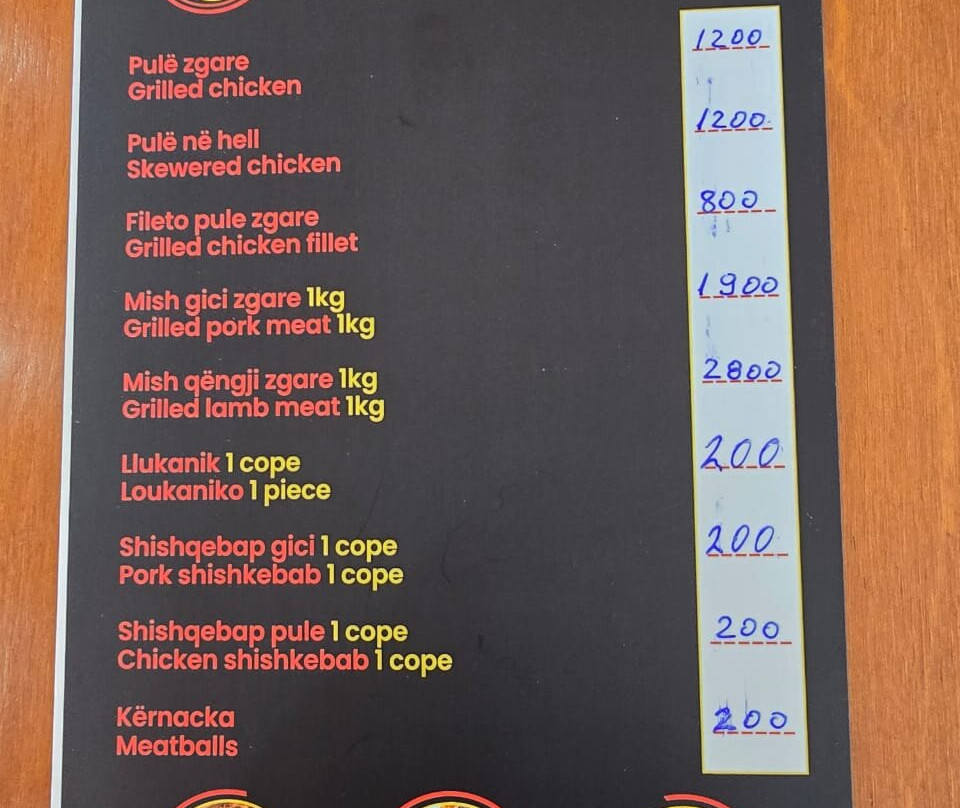 Pulë zgare 1200
Grilled chicken
Pulë në hell 1200
Skewered chicken
Fileto pule zgare 800
Grilled chicken fillet
Mish gici zgare 1kg 1900
Grilled pork meat 1kg
Mish qëngji zgare 1kg 2800
Grilled lamb meat 1kg
Llukanik 1 cope 200
Loukaniko 1 piece
Shishqebap gici 1 cope 200
Pork shishkebab 1 cope
Shishqebap pule 1 cope 200
Chicken shishkebab 1 cope
Kërnacka 200
Meatballs